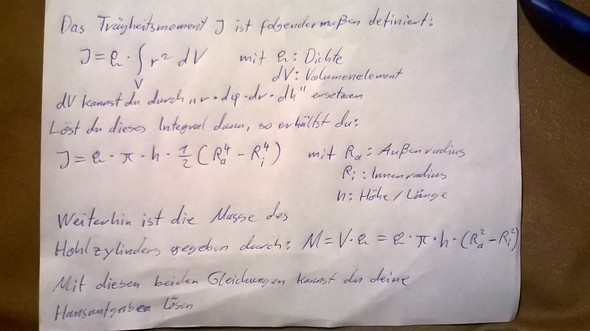 Das Trägheitsmoment J ist folgendermaßen definiert:
J = ϱ · ∫ r² dV mit ϱ: Dichte
V dV: Volumenelement
dV kannst du durch „r · dφ · dr · dh" ersetzen
Löst du dieses Integral dann, so erhältst du:
J = ϱ · π · h · 1/2 (Ra⁴ - Ri⁴) mit Ra: Außenradius
Ri: Innenradius
h: Höhe/Länge
Weiterhin ist die Masse des
Hohlzylinders gegeben durch: M = V · ϱ = ϱ · π · h · (Ra² - Ri²)
Mit diesen beiden Gleichungen kannst du deine
Hausaufgaben lösen